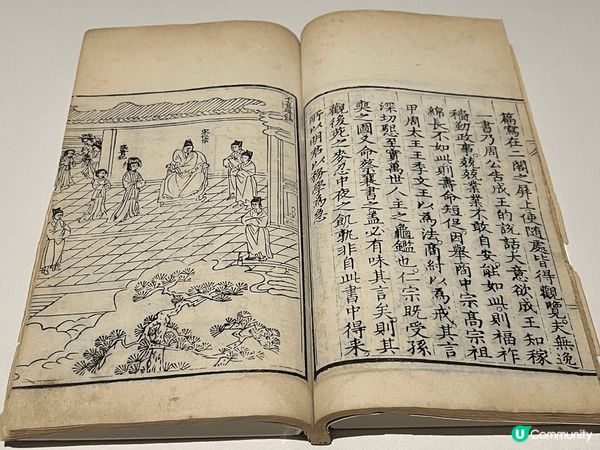 篇寫在二閣之屏上使隨處皆得觀覽。夫無逸
一書乃周公告成王的說話大意欲成王知稼
穡勤政事兢兢業業不敢自安。能如此。則福祚
綿長不如此則壽命短促。因舉商中宗高宗祖
甲周太王王季文王以為法。商紂以為戒。其言
深切懇至實萬世人主之龜鑑也。仁宗既受孫
奭之圖又命蔡襄書之蓋必有味其言矣則其
觀後苑之麥忍中夜之飢孰非自此書中得來。
所以明君以務學為急
U Community